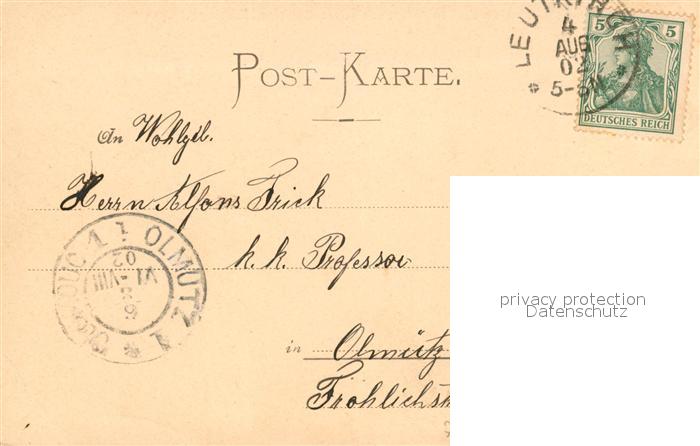 LEUTKIRCH
4
AUG
02
5-6N
5 5
DEUTSCHES REICH
POST-KARTE.
An Wohlgeb.
Herrn Alfons Frick
k. k. Professor
OLMÜTZ 1
OLOMOUC 1
02
VI-VIII
privacy protection
Datenschutz
in Olmütz